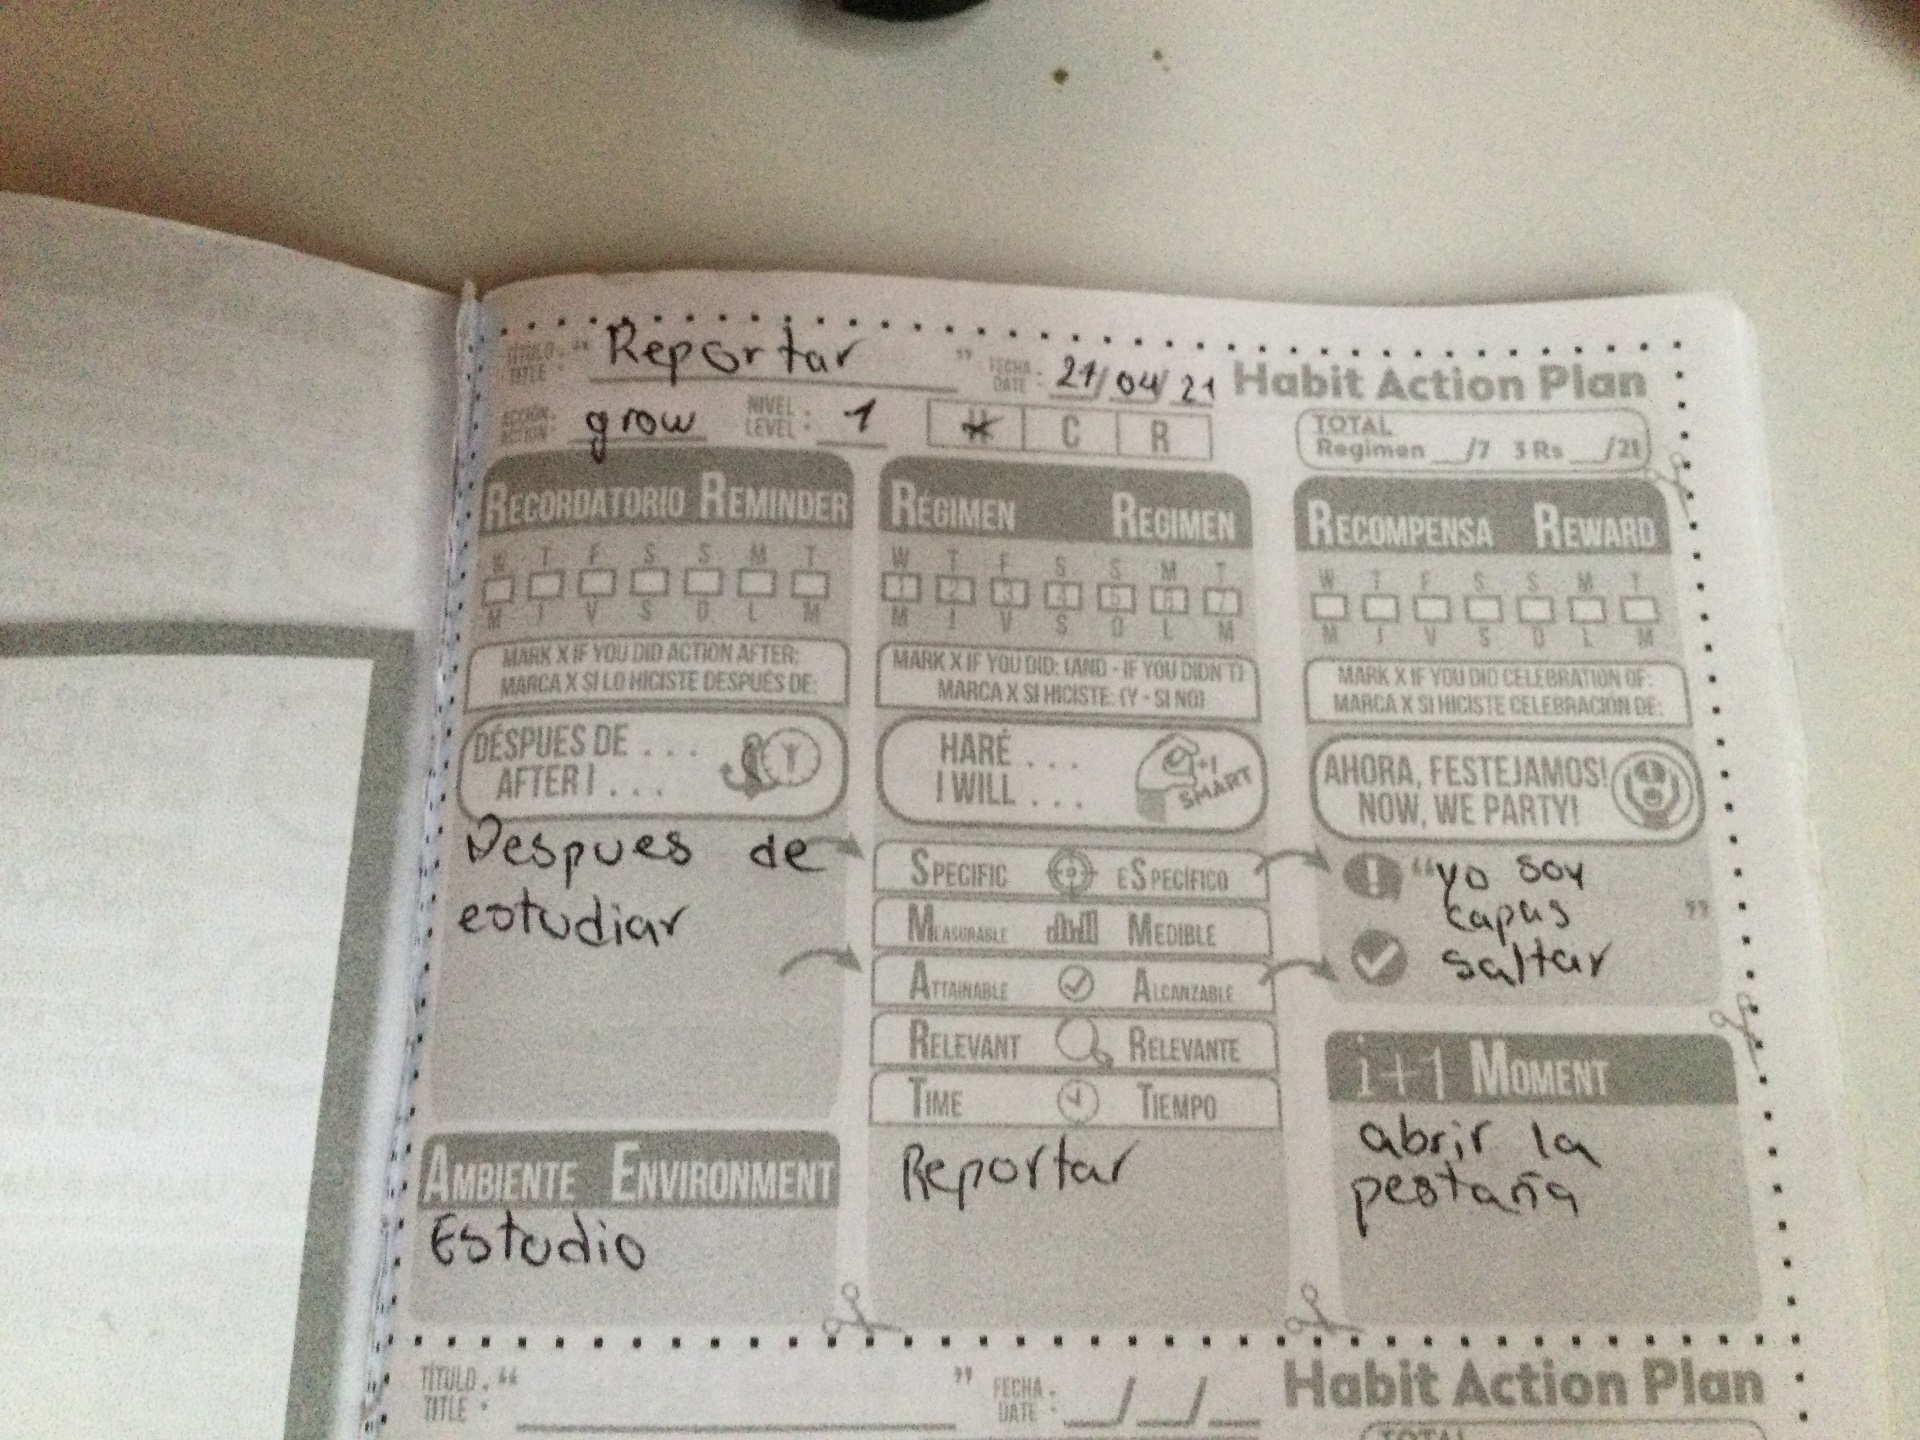 TÍTULO : " Reportar "
TITLE
FECHA : 21/04/21
DATE
Habit Action Plan
ACCIÓN : grow
ACTION
NIVEL : 1
LEVEL
C R
TOTAL
Regimen __/7 3 Rs __/21
RECORDATORIO REMINDER
W T F S S M T
M J V S D L M
MARK X IF YOU DID ACTION AFTER:
MARCA X SI LO HICISTE DESPUÉS DE:
DÉSPUES DE . . .
AFTER I . . .
Despues de
estudiar
AMBIENTE ENVIRONMENT
Estudio
RÉGIMEN REGIMEN
W T F S S M T
1 2 3 4 5 6 7
M J V S D L M
MARK X IF YOU DID: (AND - IF YOU DIDN'T)
MARCA X SI HICISTE: (Y - SI NO)
HARÉ . . .
I WILL . . .
+1
SMART
SPECIFIC ESPECÍFICO
MEASURABLE MEDIBLE
ATTAINABLE ALCANZABLE
RELEVANT RELEVANTE
TIME TIEMPO
Reportar
RECOMPENSA REWARD
W T F S S M T
M J V S D L M
MARK X IF YOU DID CELEBRATION OF:
MARCA X SI HICISTE CELEBRACIÓN DE:
AHORA, FESTEJAMOS!
NOW, WE PARTY!
! "yo soy
capas "
saltar
i+1 MOMENT
abrir la
pestaña
TÍTULO : " "
TITLE
FECHA : __/__/__
DATE
Habit Action Plan
TOTAL